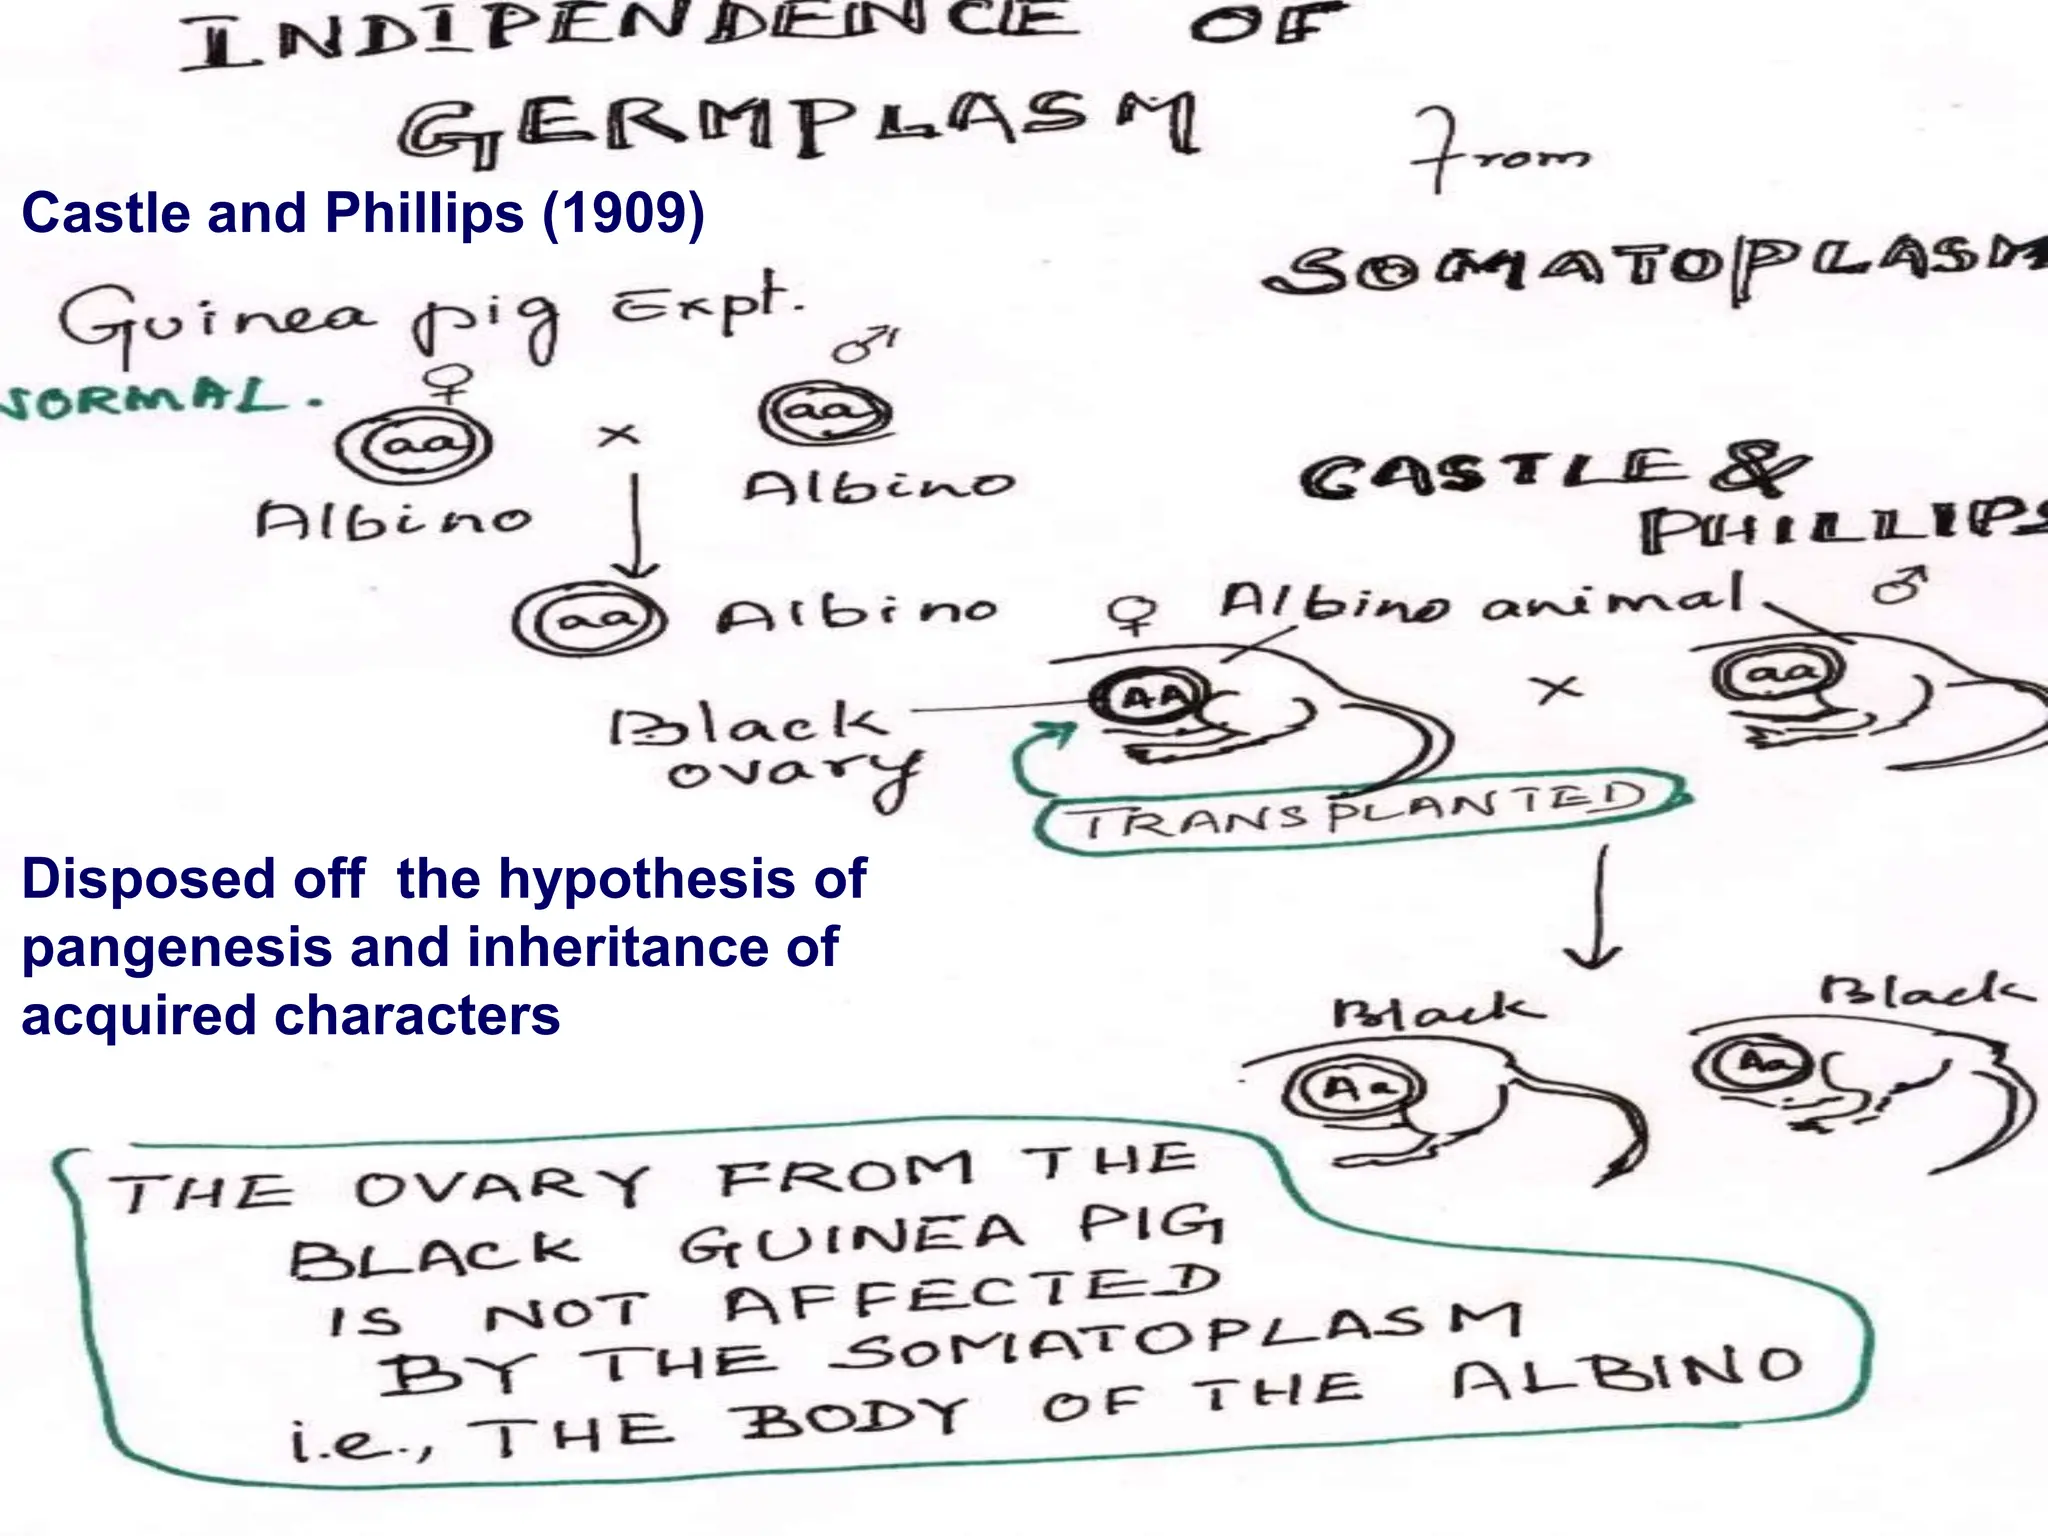 INDIPENDENCE OF
GERMPLASM
from
SOMATOPLASM
Castle and Phillips (1909)
Guinea pig Expt.
NORMAL.
♀
♂
aa
×
aa
Albino
Albino
aa
Albino
CASTLE &
PHILLIPS
♀
Albino animal
♂
AA
×
aa
Black
ovary
TRANSPLANTED
Disposed off the hypothesis of
pangenesis and inheritance of
acquired characters
Black
Black
Aa
Aa
THE OVARY FROM THE
BLACK GUINEA PIG
IS NOT AFFECTED
BY THE SOMATOPLASM
i.e., THE BODY OF THE ALBINO